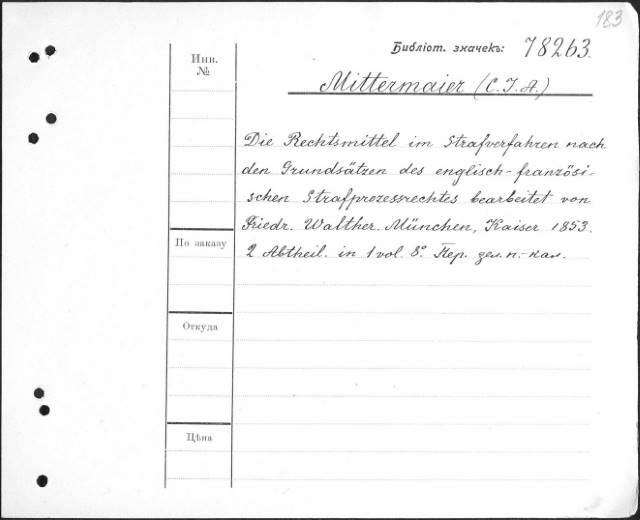 183
Библіот. значекъ: 78263.
Инв.
№
Mittermaier (C. J. A.)
Die Rechtsmittel im Strafverfahren nach
den Grundsätzen des englisch-französi-
schen Strafprozessrechtes bearbeitet von
Friedr. Walther. München, Kaiser 1853.
По заказу
2 Abtheil. in 1 vol. 8°. Пер. зел. п.-кал.
Откуда
Цѣна